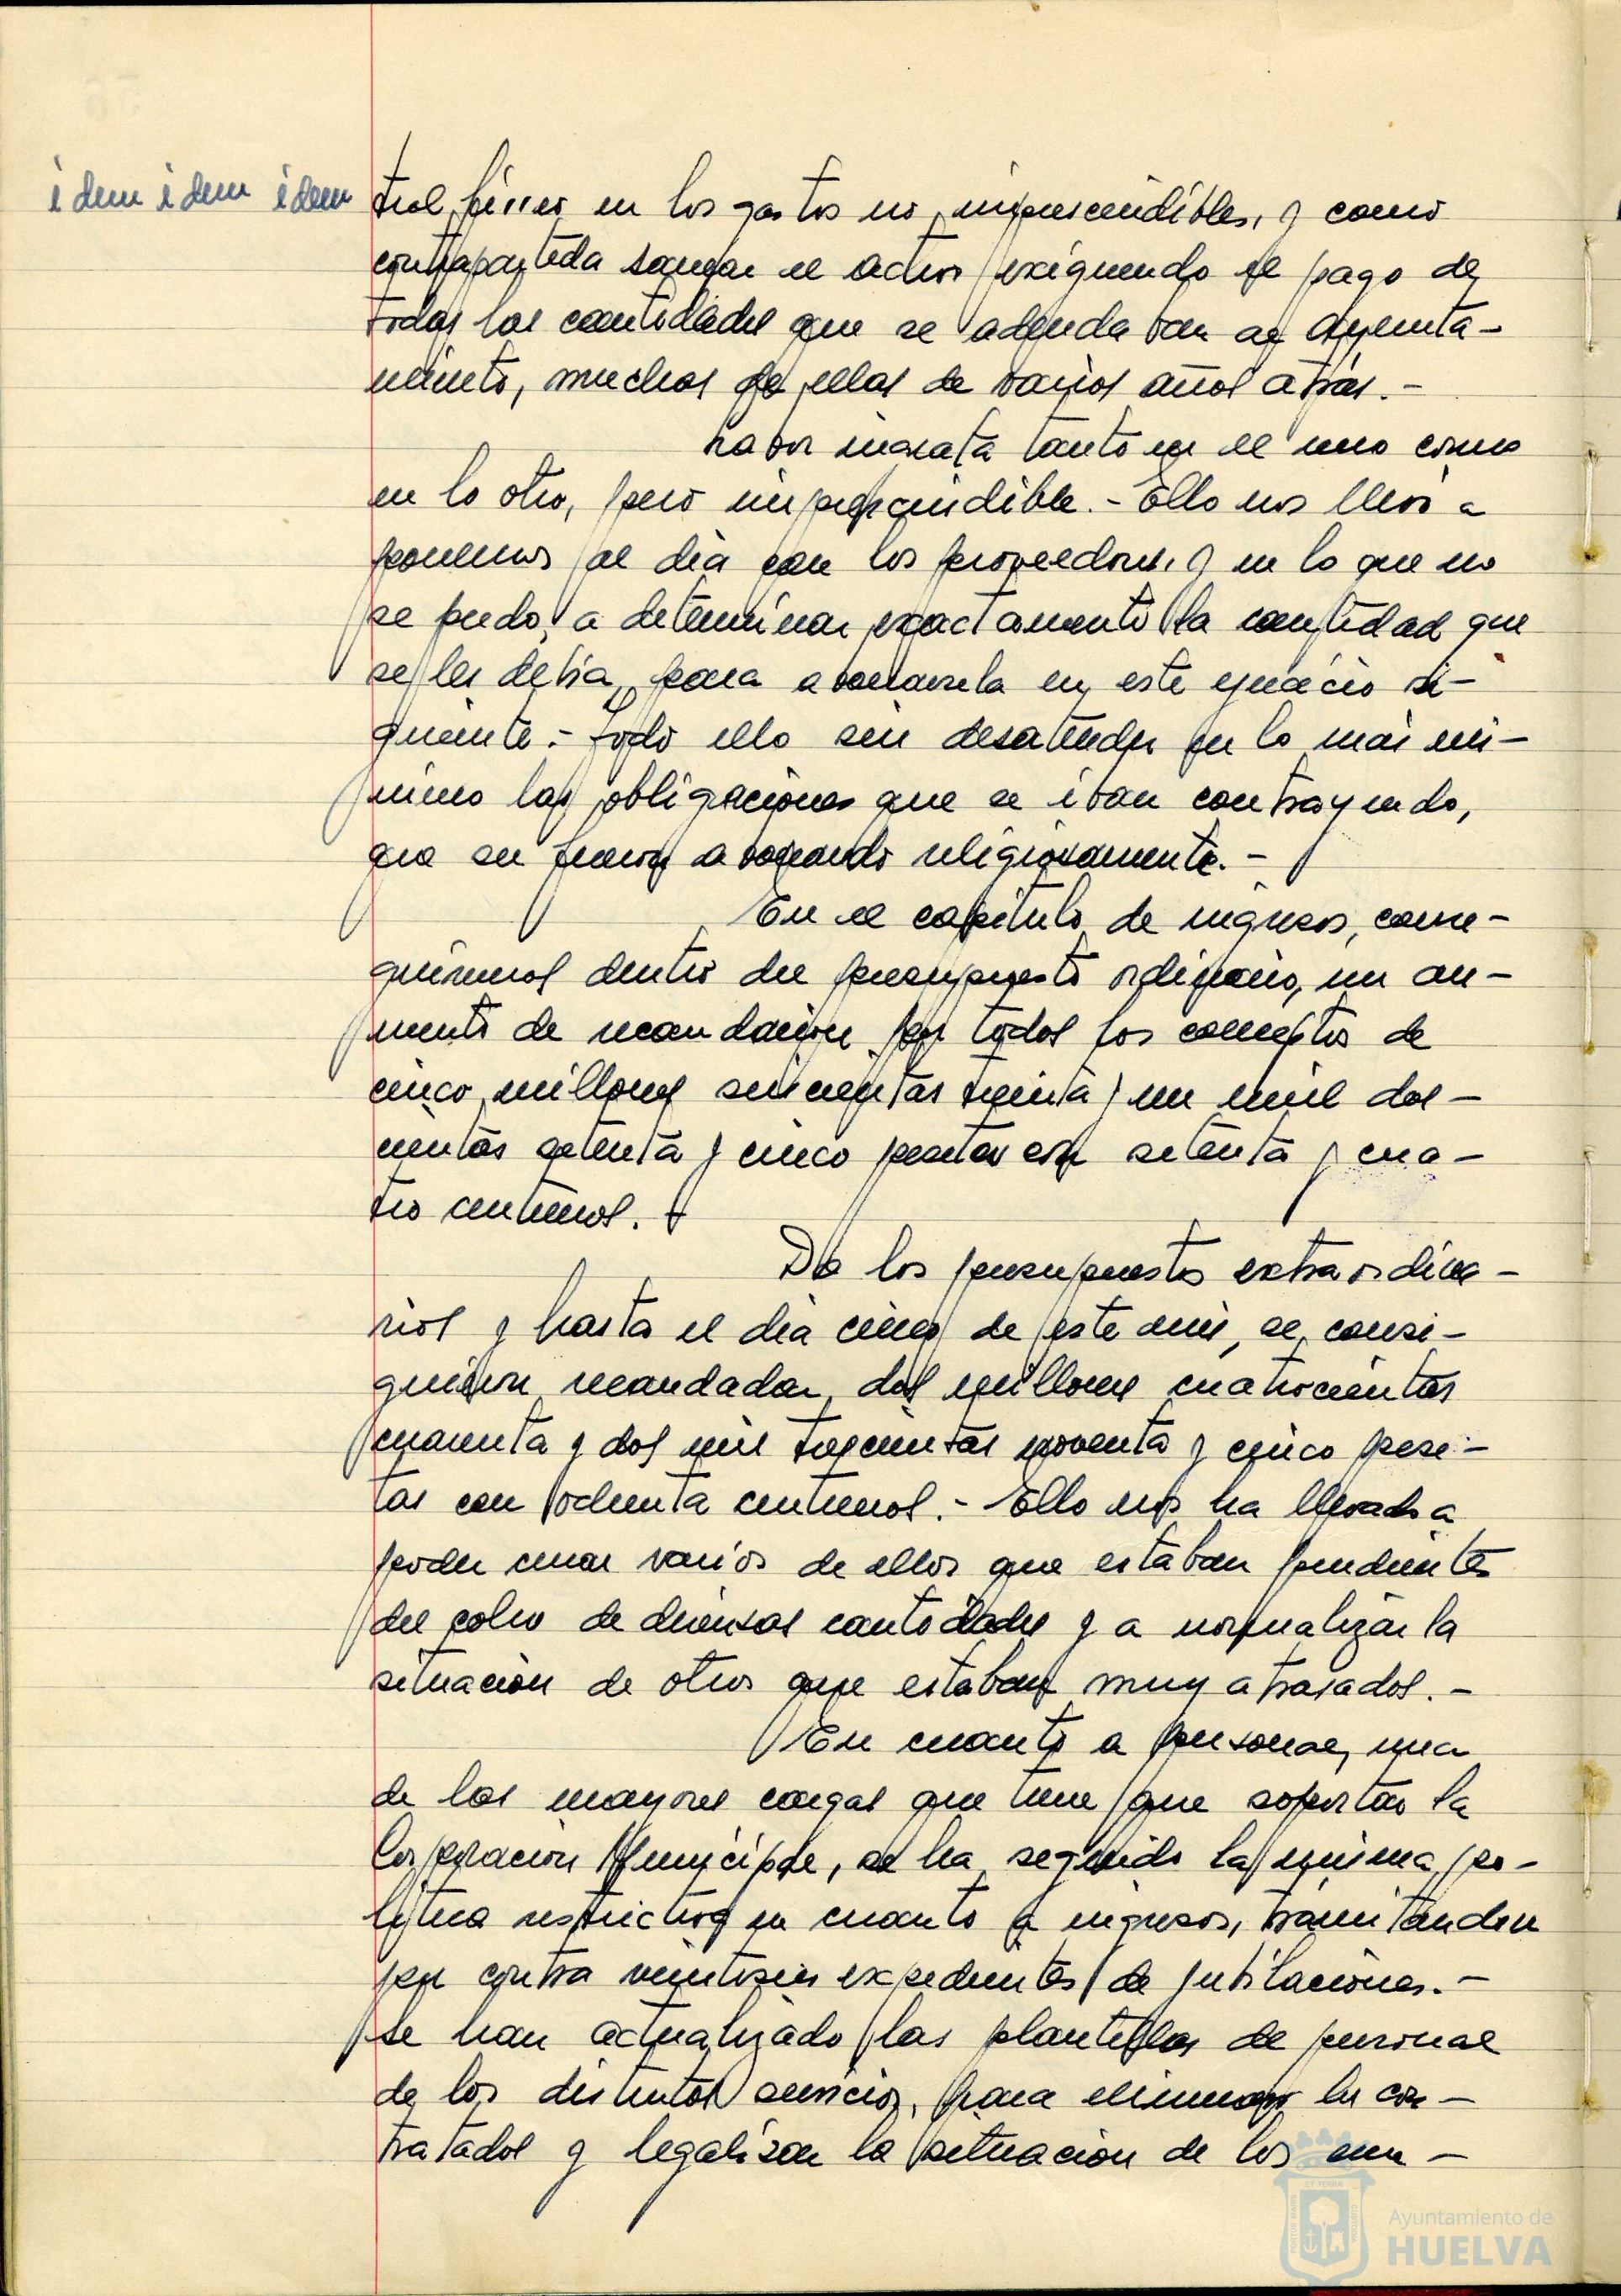 idem idem idem
trol férreo en los gastos no imprescindibles, y como
contrapartida sanear el activo exigiendo el pago de
todas las cantidades que se adeudaban al Ayunta-
miento, muchas de ellas de varios años atrás.-
Labor ingrata tanto en el uno como
en lo otro, pero imprescindible.- Ello nos llevó a
ponernos al dia con los proveedores, y en lo que no
se pudo, a determinar exactamente la cantidad que
se les debia, para abonarsela en este ejercicio si-
guiente.- Todo ello sin desatender en lo mas mi-
nimo las obligaciones que se iban contrayendo,
que se fueron abonando religiosamente.-
En el capitulo de ingresos, conse-
guiremos dentro del presupuesto ordinario, un au-
mento de recaudacion por todos los conceptos de
cinco millones seiscientas treinta y un mil dos-
cientas setenta y cinco pesetas con setenta y cua-
tro centimos.-
De los presupuestos extraordina-
rios y hasta el dia cinco de este mes, se consi-
guieron recaudar dos millones cuatrocientas
cuarenta y dos mil trescientas noventa y cinco pese-
tas con ochenta centimos.- Ello nos ha llevado a
poder cerrar varios de ellos que estaban pendientes
del cobro de diversas cantidades y a normalizar la
situacion de otros que estaban muy atrasados.-
En cuanto a personal, una
de las mayores cargas que tiene que soportar la
Corporacion Municipal, se ha seguido la misma po-
litica restrictiva en cuanto a ingresos, tramitandose
por contra veintiseis expedientes de jubilaciones.-
Se han actualizado las plantillas de personal
de los distintos servicios, para eliminar los con-
tratados y legalizar la situacion de los
Ayuntamiento de
HUELVA